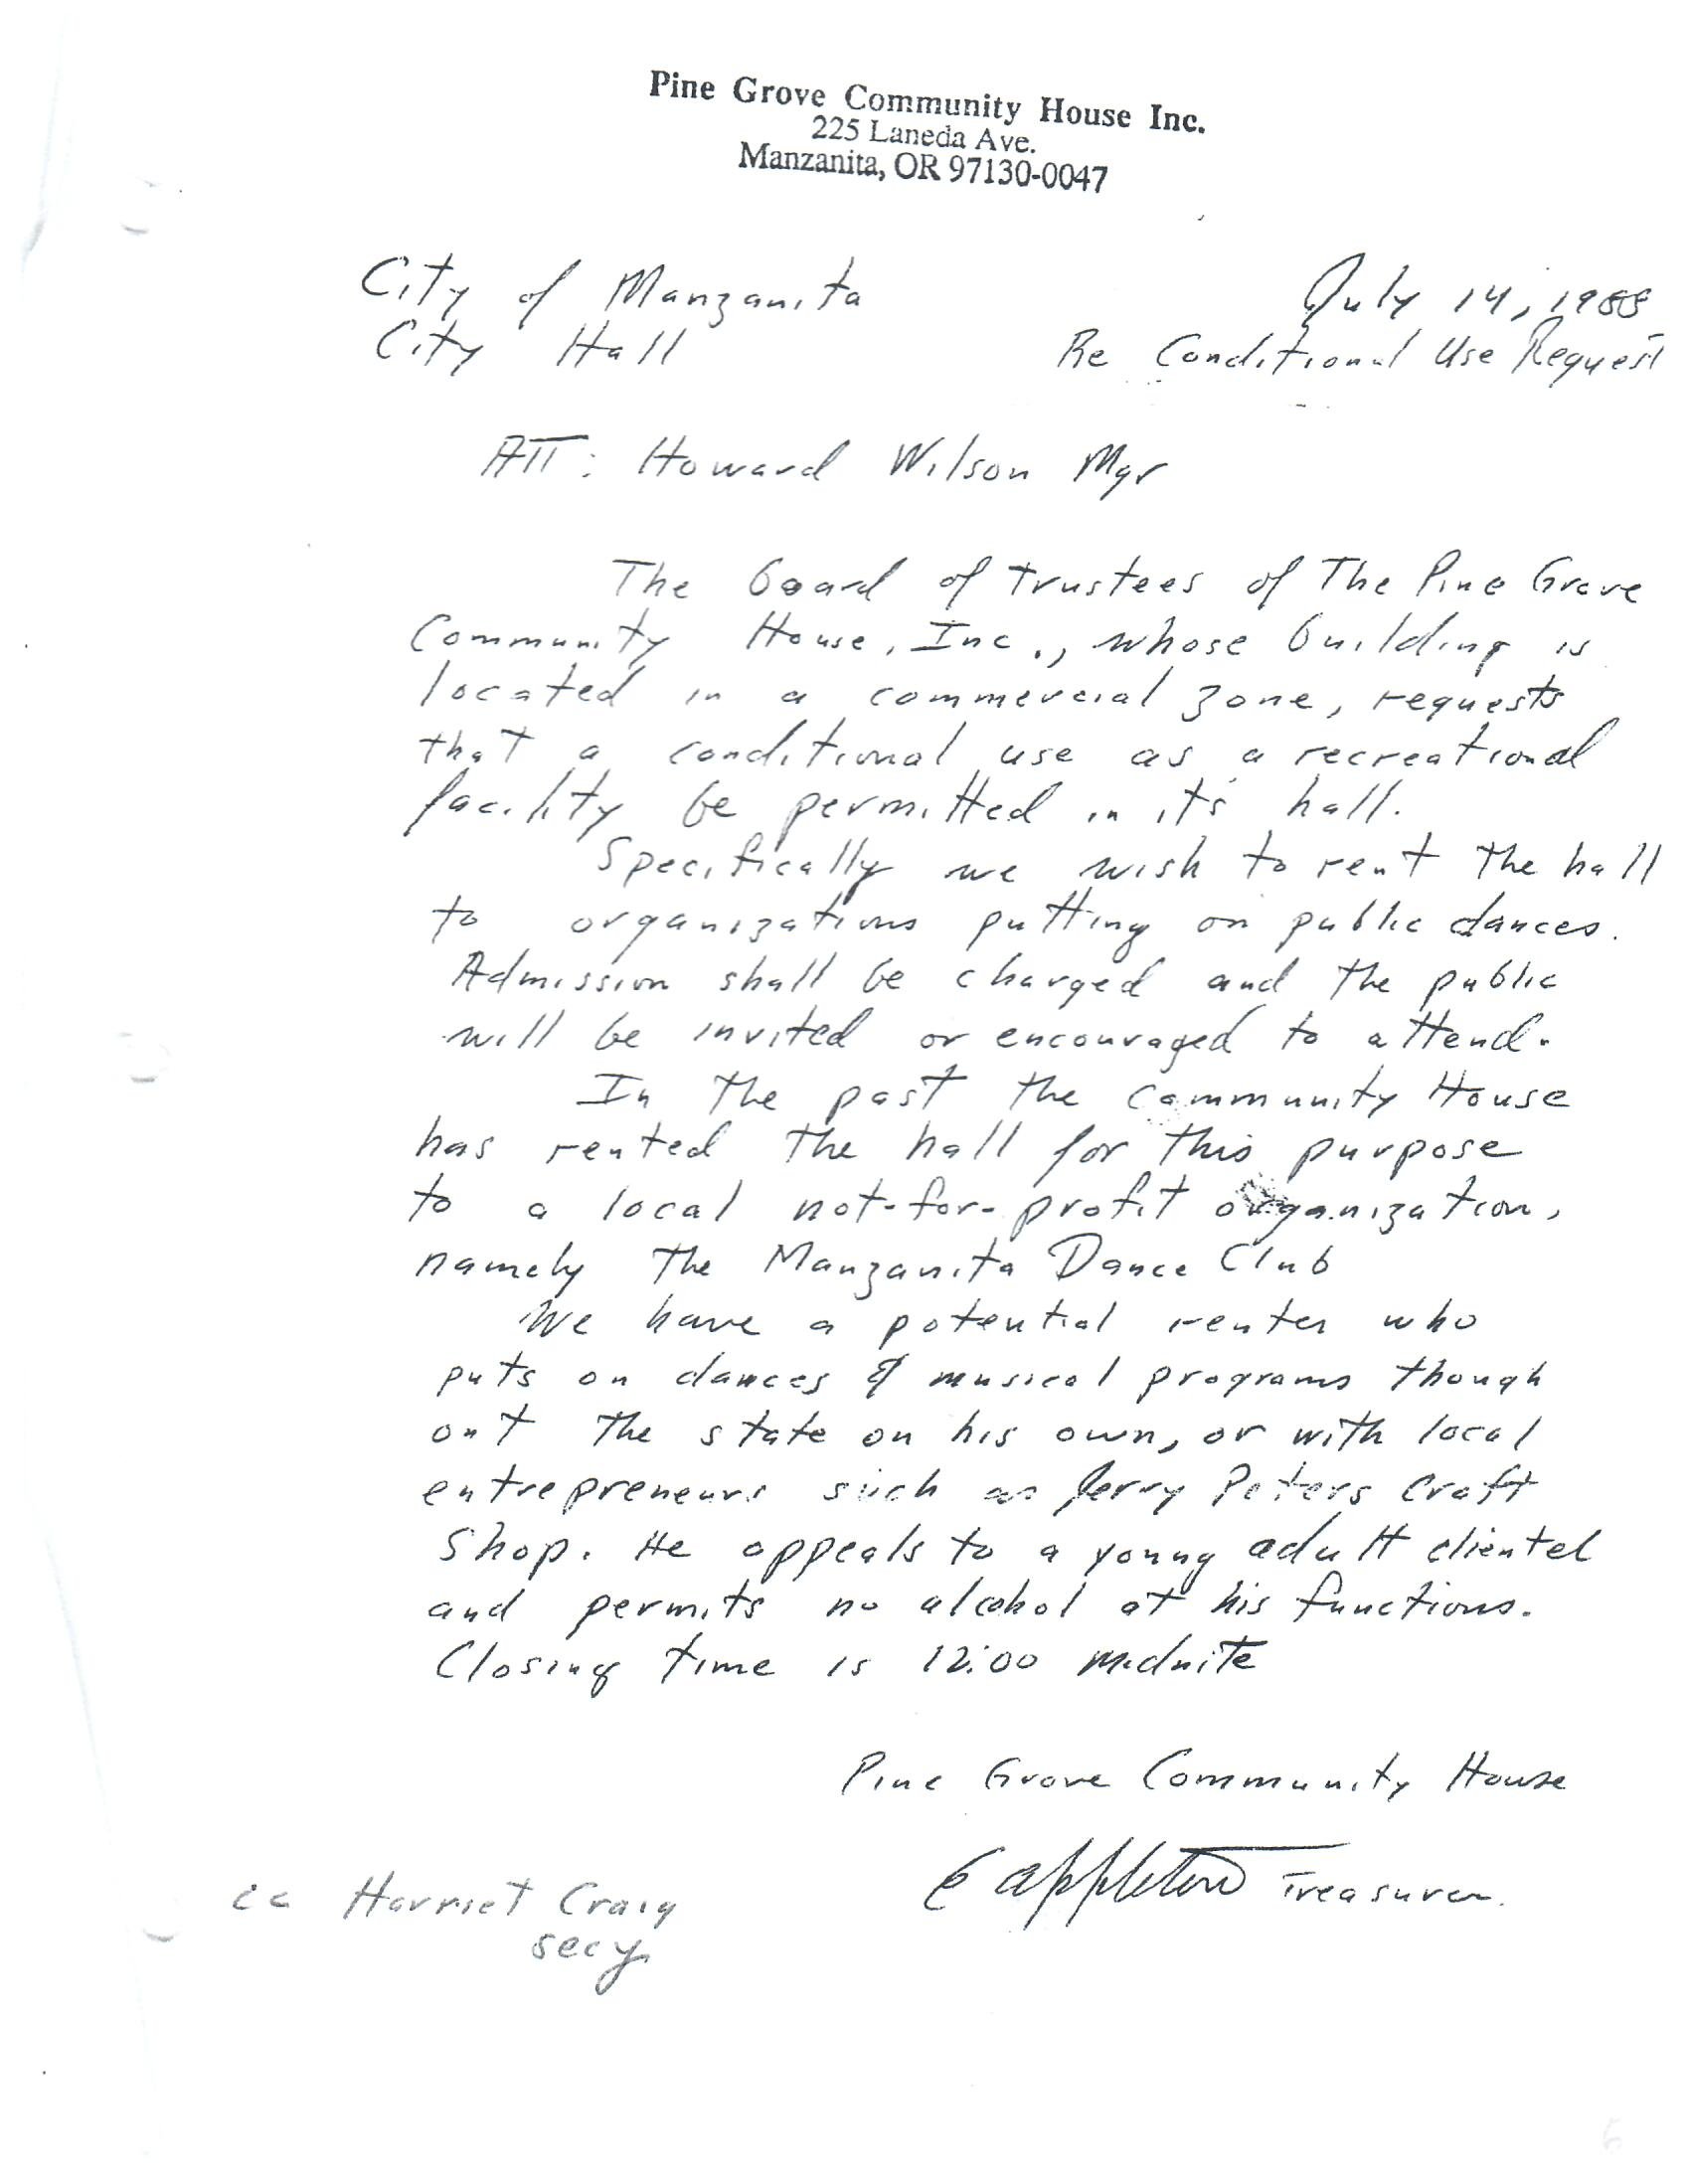 Pine Grove Community House Inc.
225 Laneda Ave.
Manzanita, OR 97130-0047
City of Manzanita
City Hall
July 14, 1988
Re Conditional Use Request
ATT: Howard Wilson Mgr
The board of trustees of The Pine Grove
Community House, Inc., whose building is
located in a commercial zone, requests
that a conditional use as a recreational
facility be permitted in it's hall.
Specifically we wish to rent the hall
to organizations putting on public dances.
Admission shall be charged and the public
will be invited or encouraged to attend.
In the past the Community House
has rented the hall for this purpose
to a local not-for-profit organization,
namely the Manzanita Dance Club
We have a potential renter who
puts on dances & musical programs though
out the state on his own, or with local
entrepreneurs such as Jerry Peters Craft
Shop. He appeals to a young adult clientel
and permits no alcohol at his functions.
Closing time is 12:00 midnite
Pine Grove Community House
E Appleton Treasurer.
cc Harriet Craig
secy